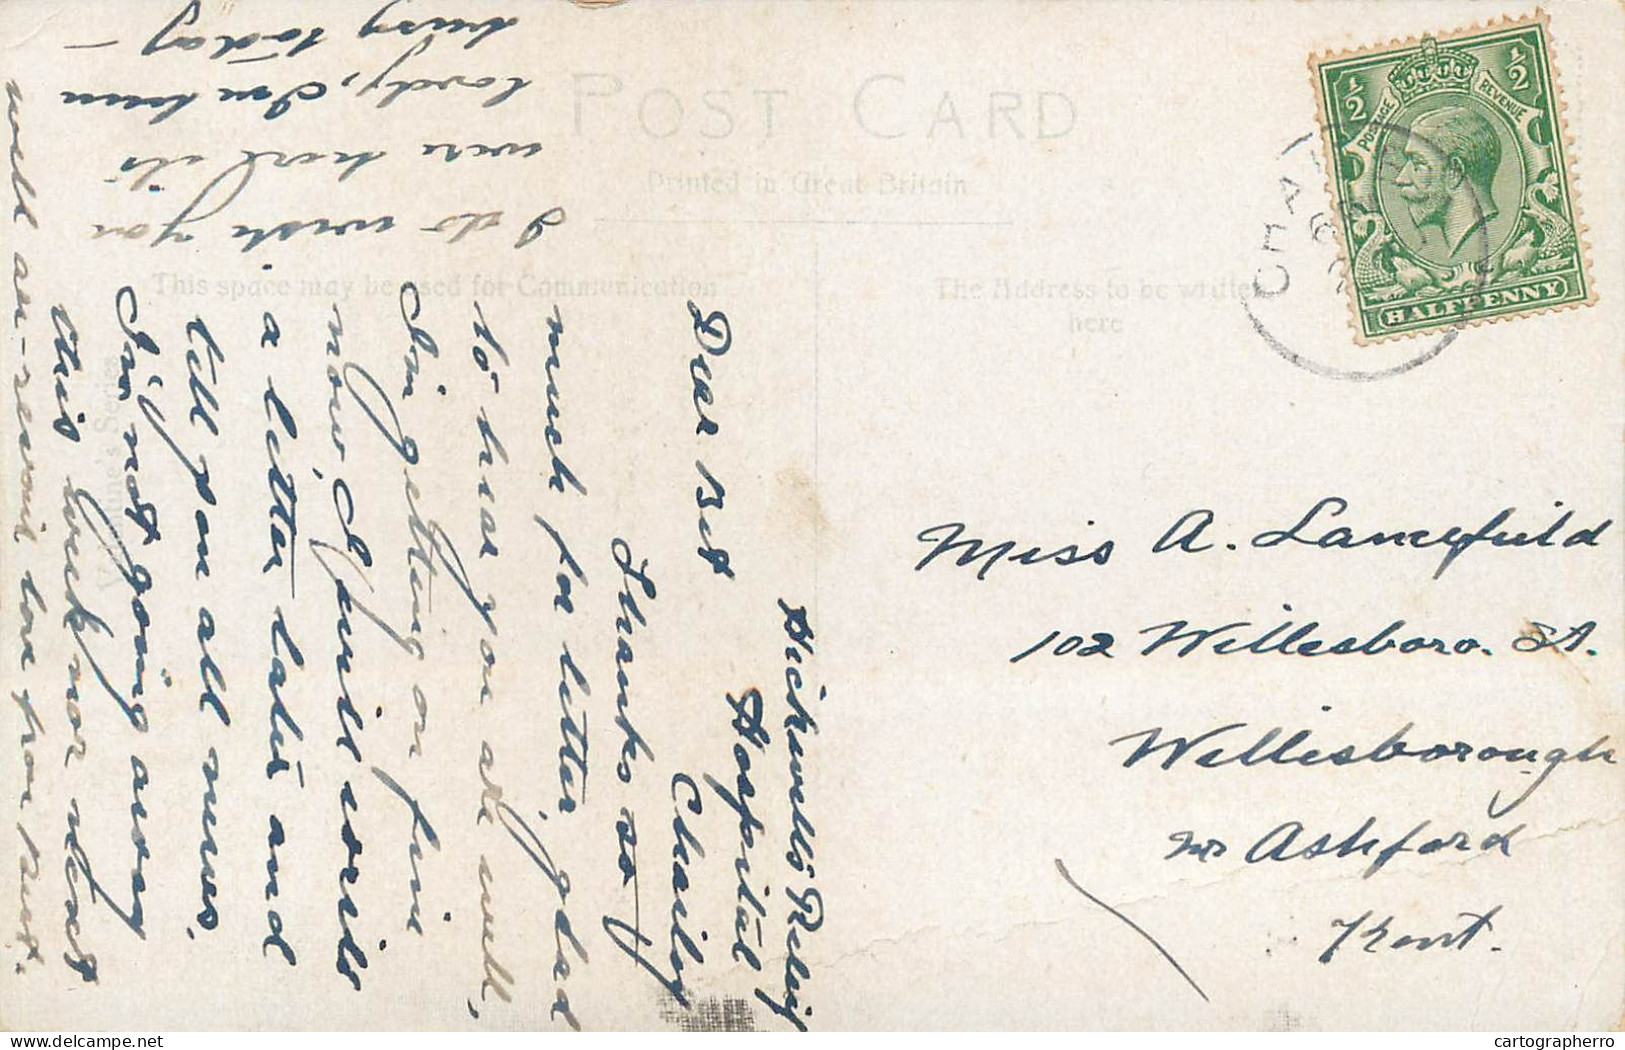 POST CARD
Printed in Great Britain
This space may be used for Communication
The Address to be written
here
Valentine's Series
½
½
POSTAGE
REVENUE
HALFPENNY
CHAI
Hickwells Relief
Hospital
Chailey
Dear Bet
Thanks so
much for letter, glad
to hear you are well,
I'm getting on fine
now, I will write
a letter later and
tell you all news.
I'm not going away
this week nor next
well au-revoir love from
I do wish you
were here its
lovely, I've been
busy today –
Miss A. Langfield
102 Willesboro. St.
Willesborough
nr Ashford
Kent.
cartographerro